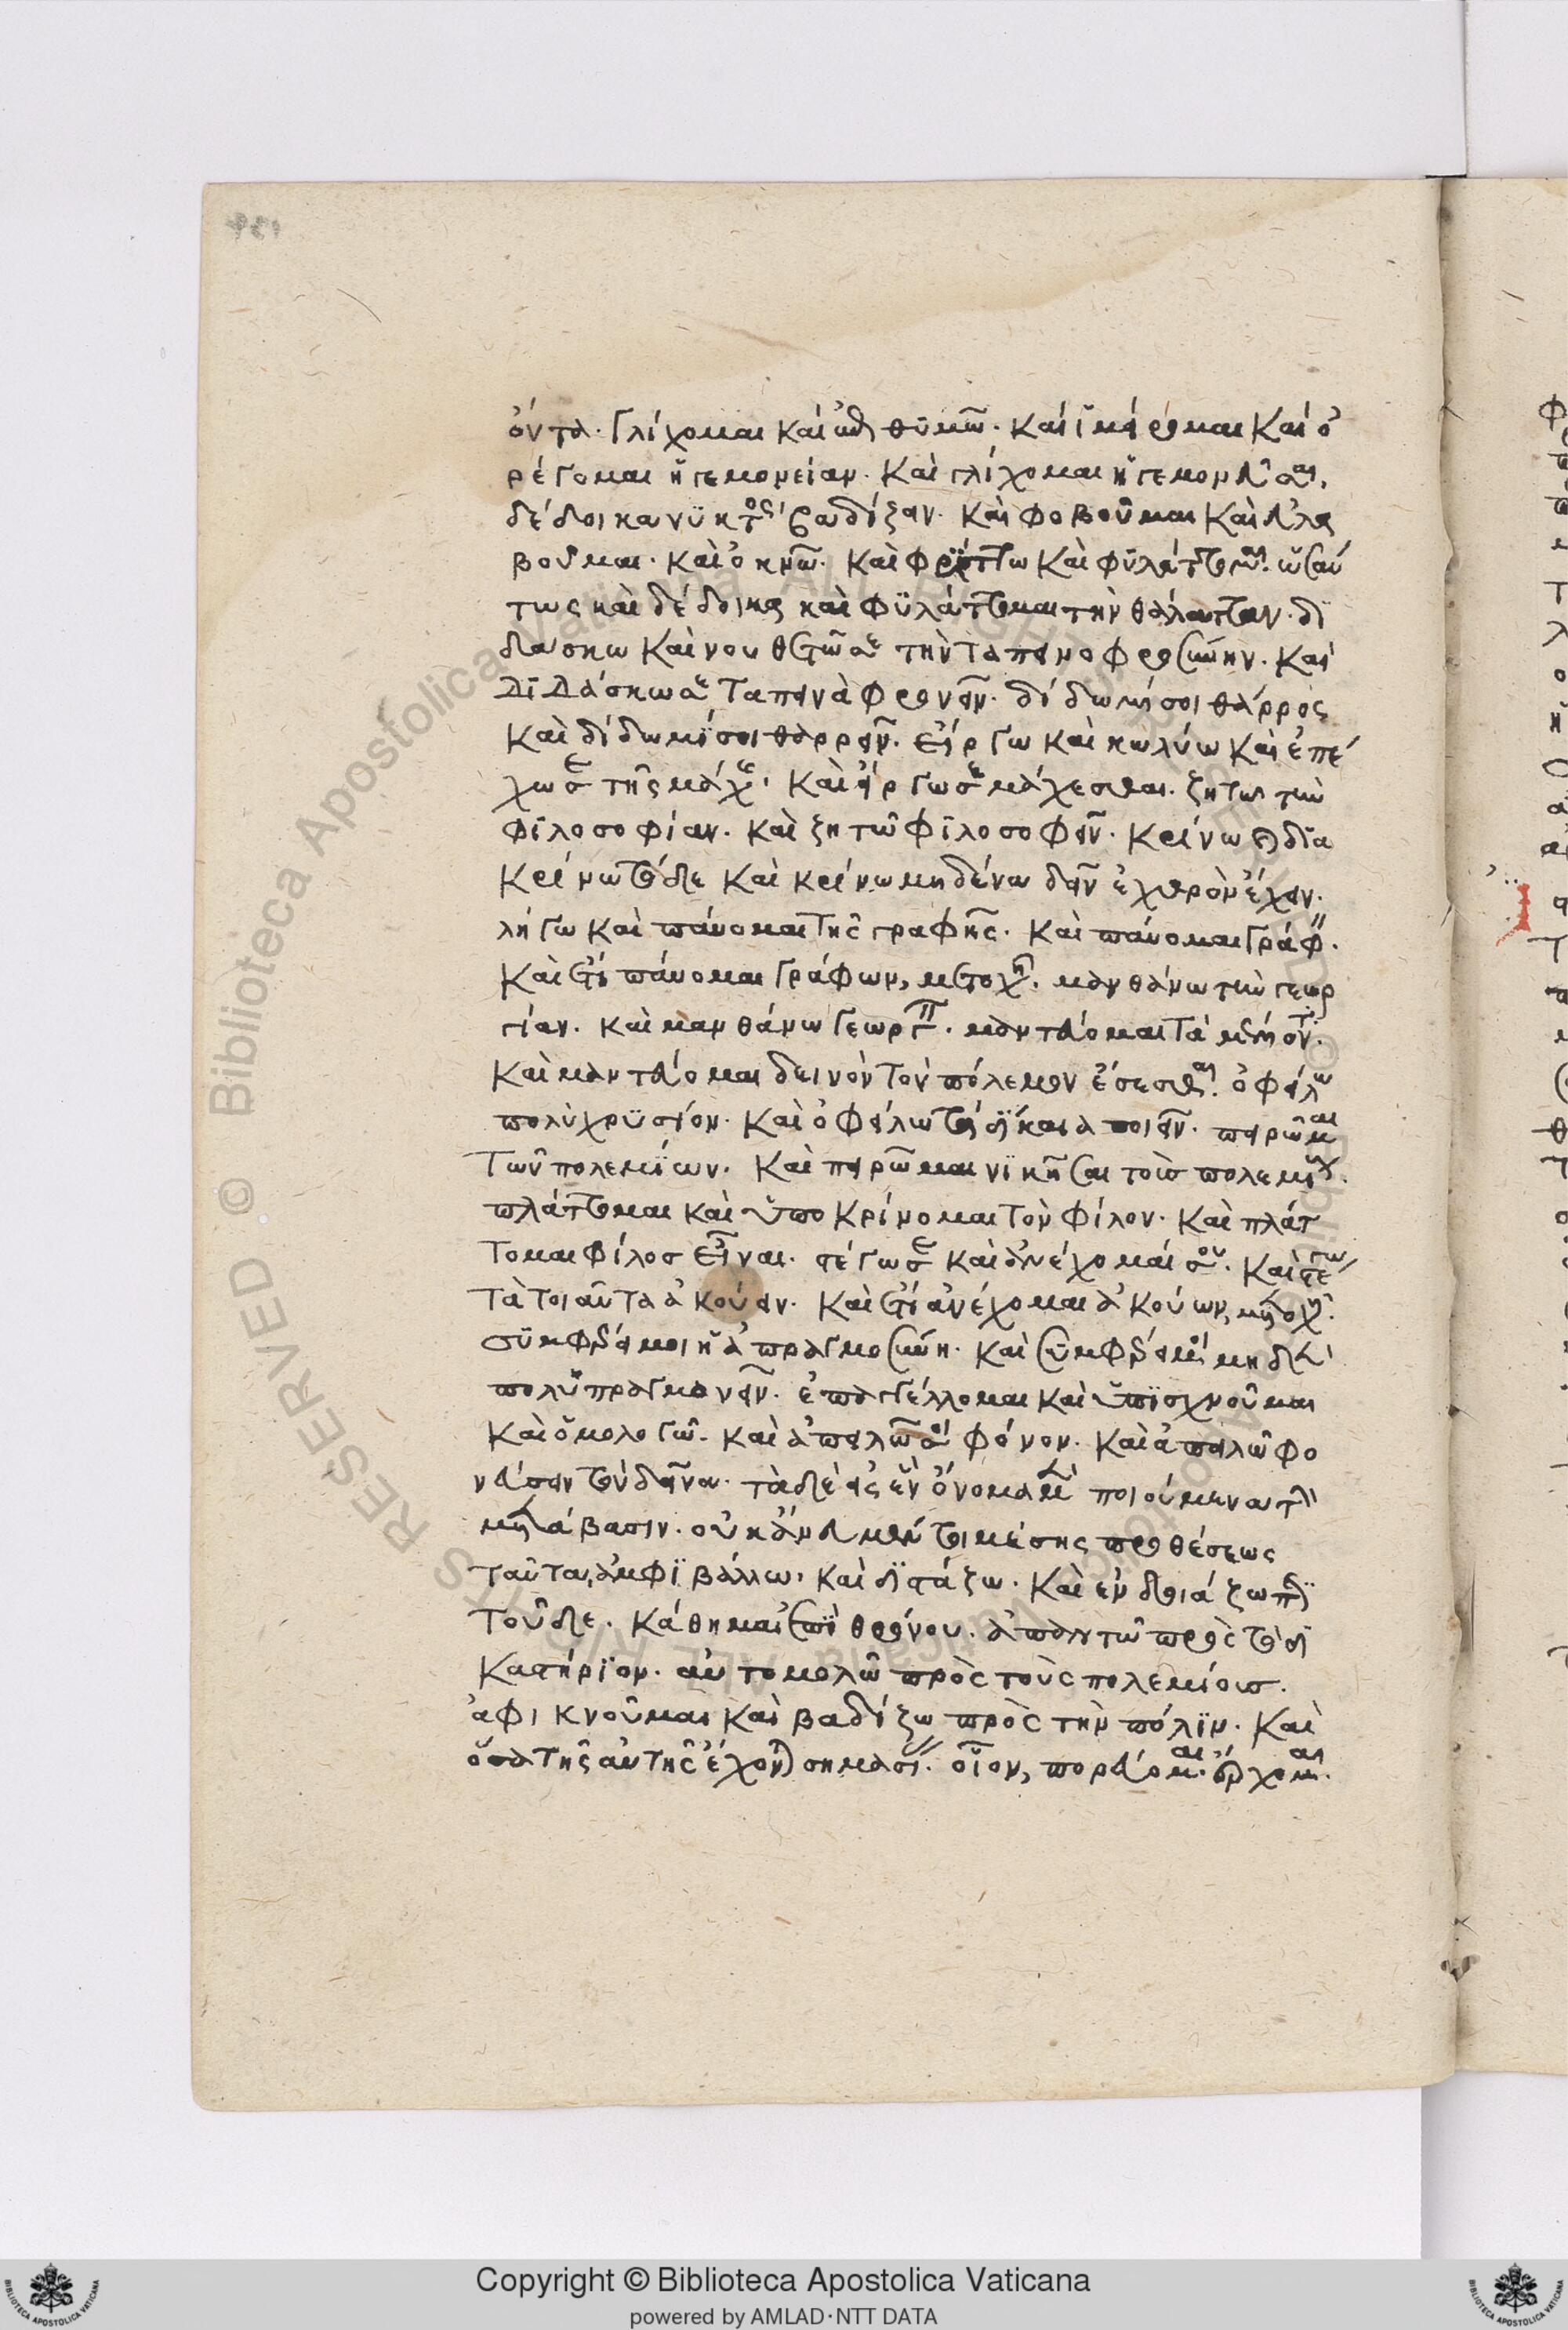 όντα. Γλίχομαι καὶ ἐπιθυμῶ. καὶ ἱμείρομαι καὶ ὀ
ρέγομαι ἡγεμονείαν. καὶ γλίχομαι ἡγεμονεῦσαι.
δέδοικα νυκτὸς βαδίζειν. καὶ φοβοῦμαι καὶ εὐλα
βοῦμαι. καὶ ὀκνῶ. καὶ φρίττω καὶ φυλάττομαι. ὡσαύ
τως καὶ δέδοικα καὶ φυλάττομαι τὴν θάλατταν. δι
δάσκω καὶ νουθετῶ σε τὴν ταπεινοφροσύνην. καὶ
διδάσκω σε ταπεινὰ φρονεῖν. δίδωμί σοι θάρρος
καὶ δίδωμί σοι θαρρεῖν. εἴργω καὶ κωλύω καὶ ἐπέ
χω σε τῆς μάχης. καὶ εἴργω σε μάχεσθαι. ζητῶ τὴν
φιλοσοφίαν. καὶ ζητῶ φιλοσοφεῖν. κρίνω καὶ δια
κρίνω τόδε καὶ κρίνω μηδένα δεῖν ἐχθρὸν ἔχειν.
λήγω καὶ παύομαι τῆς γραφῆς. καὶ παύομαι γράφειν.
καὶ ἔτι παύομαι γράφων, μετοχή. μανθάνω τὴν γεωρ
γίαν. καὶ μανθάνω γεωργεῖν. μαντεύομαι τὰ μέλλοντα.
καὶ μαντεύομαι δεινὸν τὸν πόλεμον ἔσεσθαι. ὀφείλω
πολὺ χρυσίον. καὶ ὀφείλω τὰ δίκαια ποιεῖν. πειρῶμαι
τῶν πολεμίων. καὶ πειρῶμαι νικῆσαι τοὺς πολεμίους.
πλάττομαι καὶ ὑποκρίνομαι τὸν φίλον. καὶ πλάτ
τομαι φίλος εἶναι. στέγω σε καὶ ἀνέχομαί σου. καὶ στέγω
τὰ τοιαῦτα ἀκούειν. καὶ ἔτι ἀνέχομαι ἀκούων, μετοχή.
συμφέρει μοι ἡ ἀπραγμοσύνη. καὶ συμφέρει μοι μηδὲν
πολυπραγμονεῖν. ἐπαγγέλλομαι καὶ ὑπισχνοῦμαι
καὶ ὁμολογῶ. καὶ ἀπειλῶ σοι φόνον. καὶ ἀπειλῶ φο
νεύσειν τὸν δεῖνα. τὰ δὲ εἰς ἓν ὄνομα μὲν ποιούμενα τὴν
μετάβασιν. οὐκ ἄνευ μέντοι μέσης προθέσεως
ταῦτα, ἀμφιβάλλω. καὶ διστάζω. καὶ ἐνδοιάζω περὶ
τοῦδε. κάθημαι ἐπὶ θρόνου. ἀπαντῶ πρὸς τὸ δι
καστήριον. αὐτομολῶ πρὸς τοὺς πολεμίους.
ἀφικνοῦμαι καὶ βαδίζω πρὸς τὴν πόλιν. καὶ
ὅσα τῆς αὐτῆς ἔχονται σημασίας. οἷον, πορεύομαι. ἔρχομαι.
Copyright © Biblioteca Apostolica Vaticana
powered by AMLAD·NTT DATA